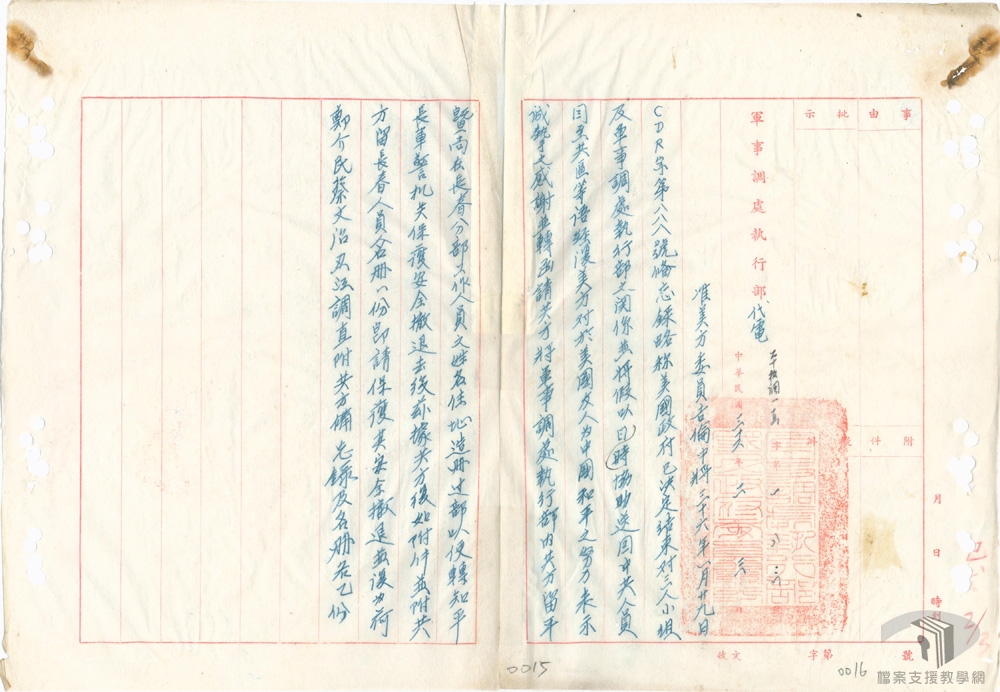 事由
批示
附件
月日時
號
軍事調處執行部代電
中華民國三十六年二月
字第號
准美方委員吉倫中將三十六年一月廿九日
CDR字第八八八號備忘錄略稱美國政府已決定結束對三人小組
及軍事調處執行部之關係並將假以(日)時協助送回中共人員
回至共區等語經復美方對於美國友人為中國和平之努力表示
誠摯之感謝並轉函請共方將軍事調處執行部內共方留平
暨尚在長春分部工作人員之姓名住址造册送部以便轉知平
長軍警機关保護安全撤退去後茲據共方復如附件並附共
方留長春人員名册一份即請保護其安全撤退並復為荷
鄭介民蔡文治 調直附共方備忘錄及名册各乙份
收文字第號
0015
0016
檔案支援教學網